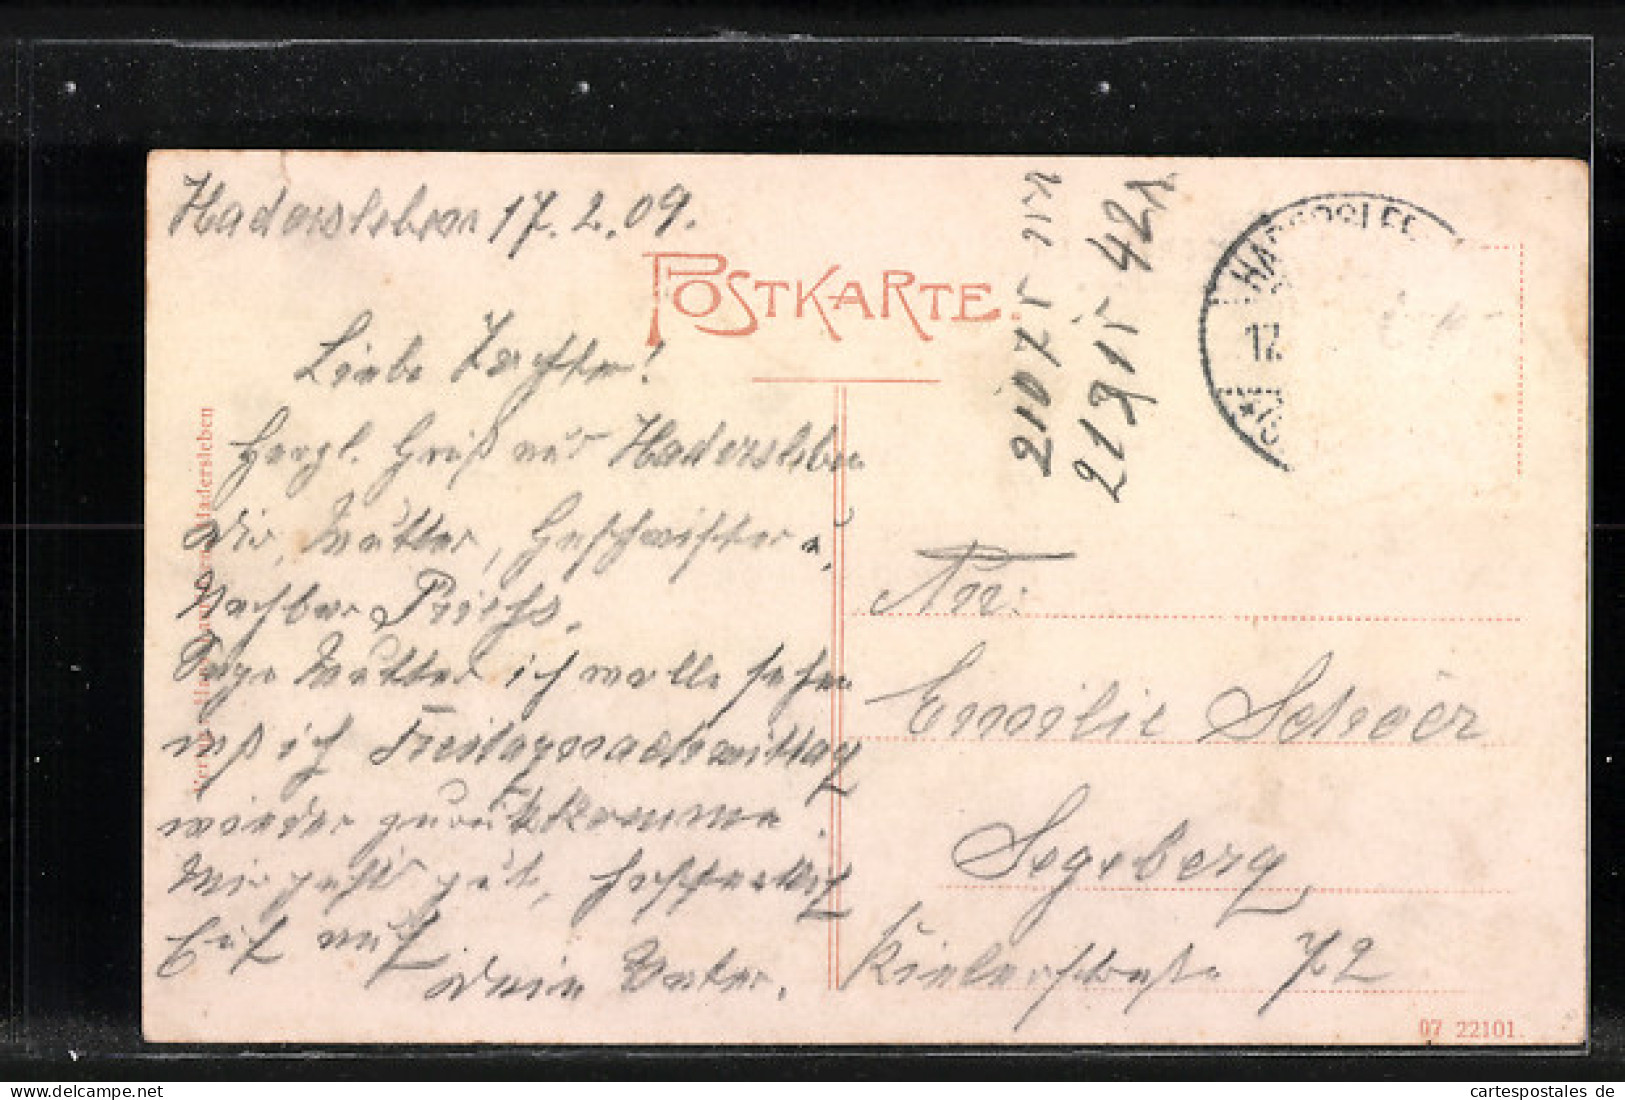 Hadersleben 17.2.09.
POSTKARTE.
Liebe Tochter!
Herzl. Gruß aus Hadersleben
Dir, Mutter, Geschwister u.
Nachbar
Sage Mutter ich wolle sehen
daß ich Freitagnachmittag
wieder zurückkomme.
Mir geht gut, hoffentlich
Euch auch
Dein Vater.
21075
21915 421
HADERSLEBEN
17.
An:
Emilie Schröer
Segeberg
Kielerstraße 72
Hadersleben
07 22101.
cartespostales de